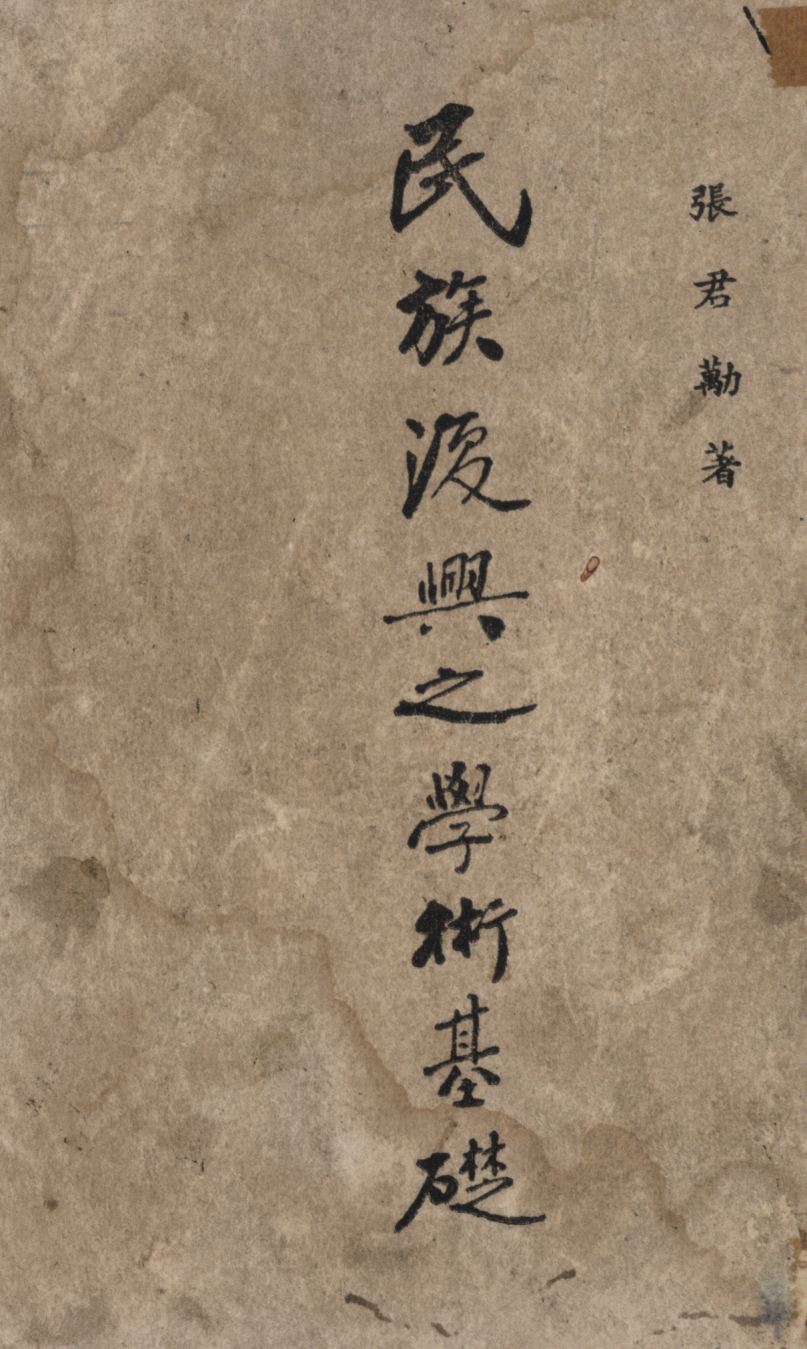 張君勱著
民族復興之學術基礎